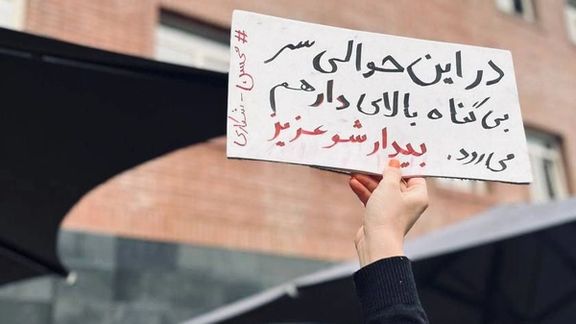 در این حوالی سر
بی‌گناه بالای دار هم
می‌رود. بیدار شو عزیز
#محسن_شکاری